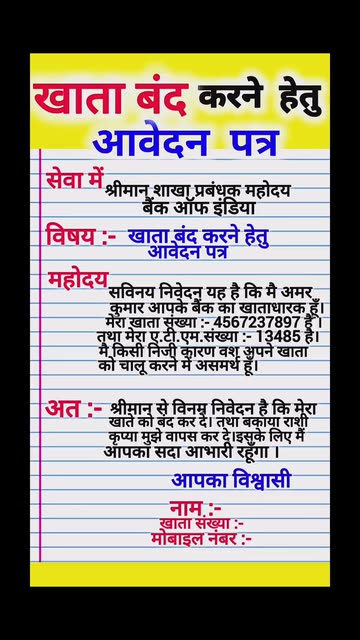 खाता बंद करने हेतु
आवेदन पत्र
सेवा में
श्रीमान शाखा प्रबंधक महोदय
बैंक ऑफ इंडिया
विषय :- खाता बंद करने हेतु
आवेदन पत्र
महोदय
सविनय निवेदन यह है कि मै अमर
कुमार आपके बैंक का खाताधारक हूँ।
मेरा खाता संख्या :- 4567237897 है ।
तथा मेरा ए.टी.एम.संख्या :- 13485 है।
मै किसी निजी कारण वश अपने खाता
को चालू करने में असमर्थ हूँ।
अत :- श्रीमान से विनम्र निवेदन है कि मेरा
खाते को बंद कर दे। तथा बकाया राशी
कृप्या मुझे वापस कर दे।इसके लिए मैं
आपका सदा आभारी रहूँगा ।
आपका विश्वासी
नाम :-
खाता संख्या :-
मोबाइल नंबर :-